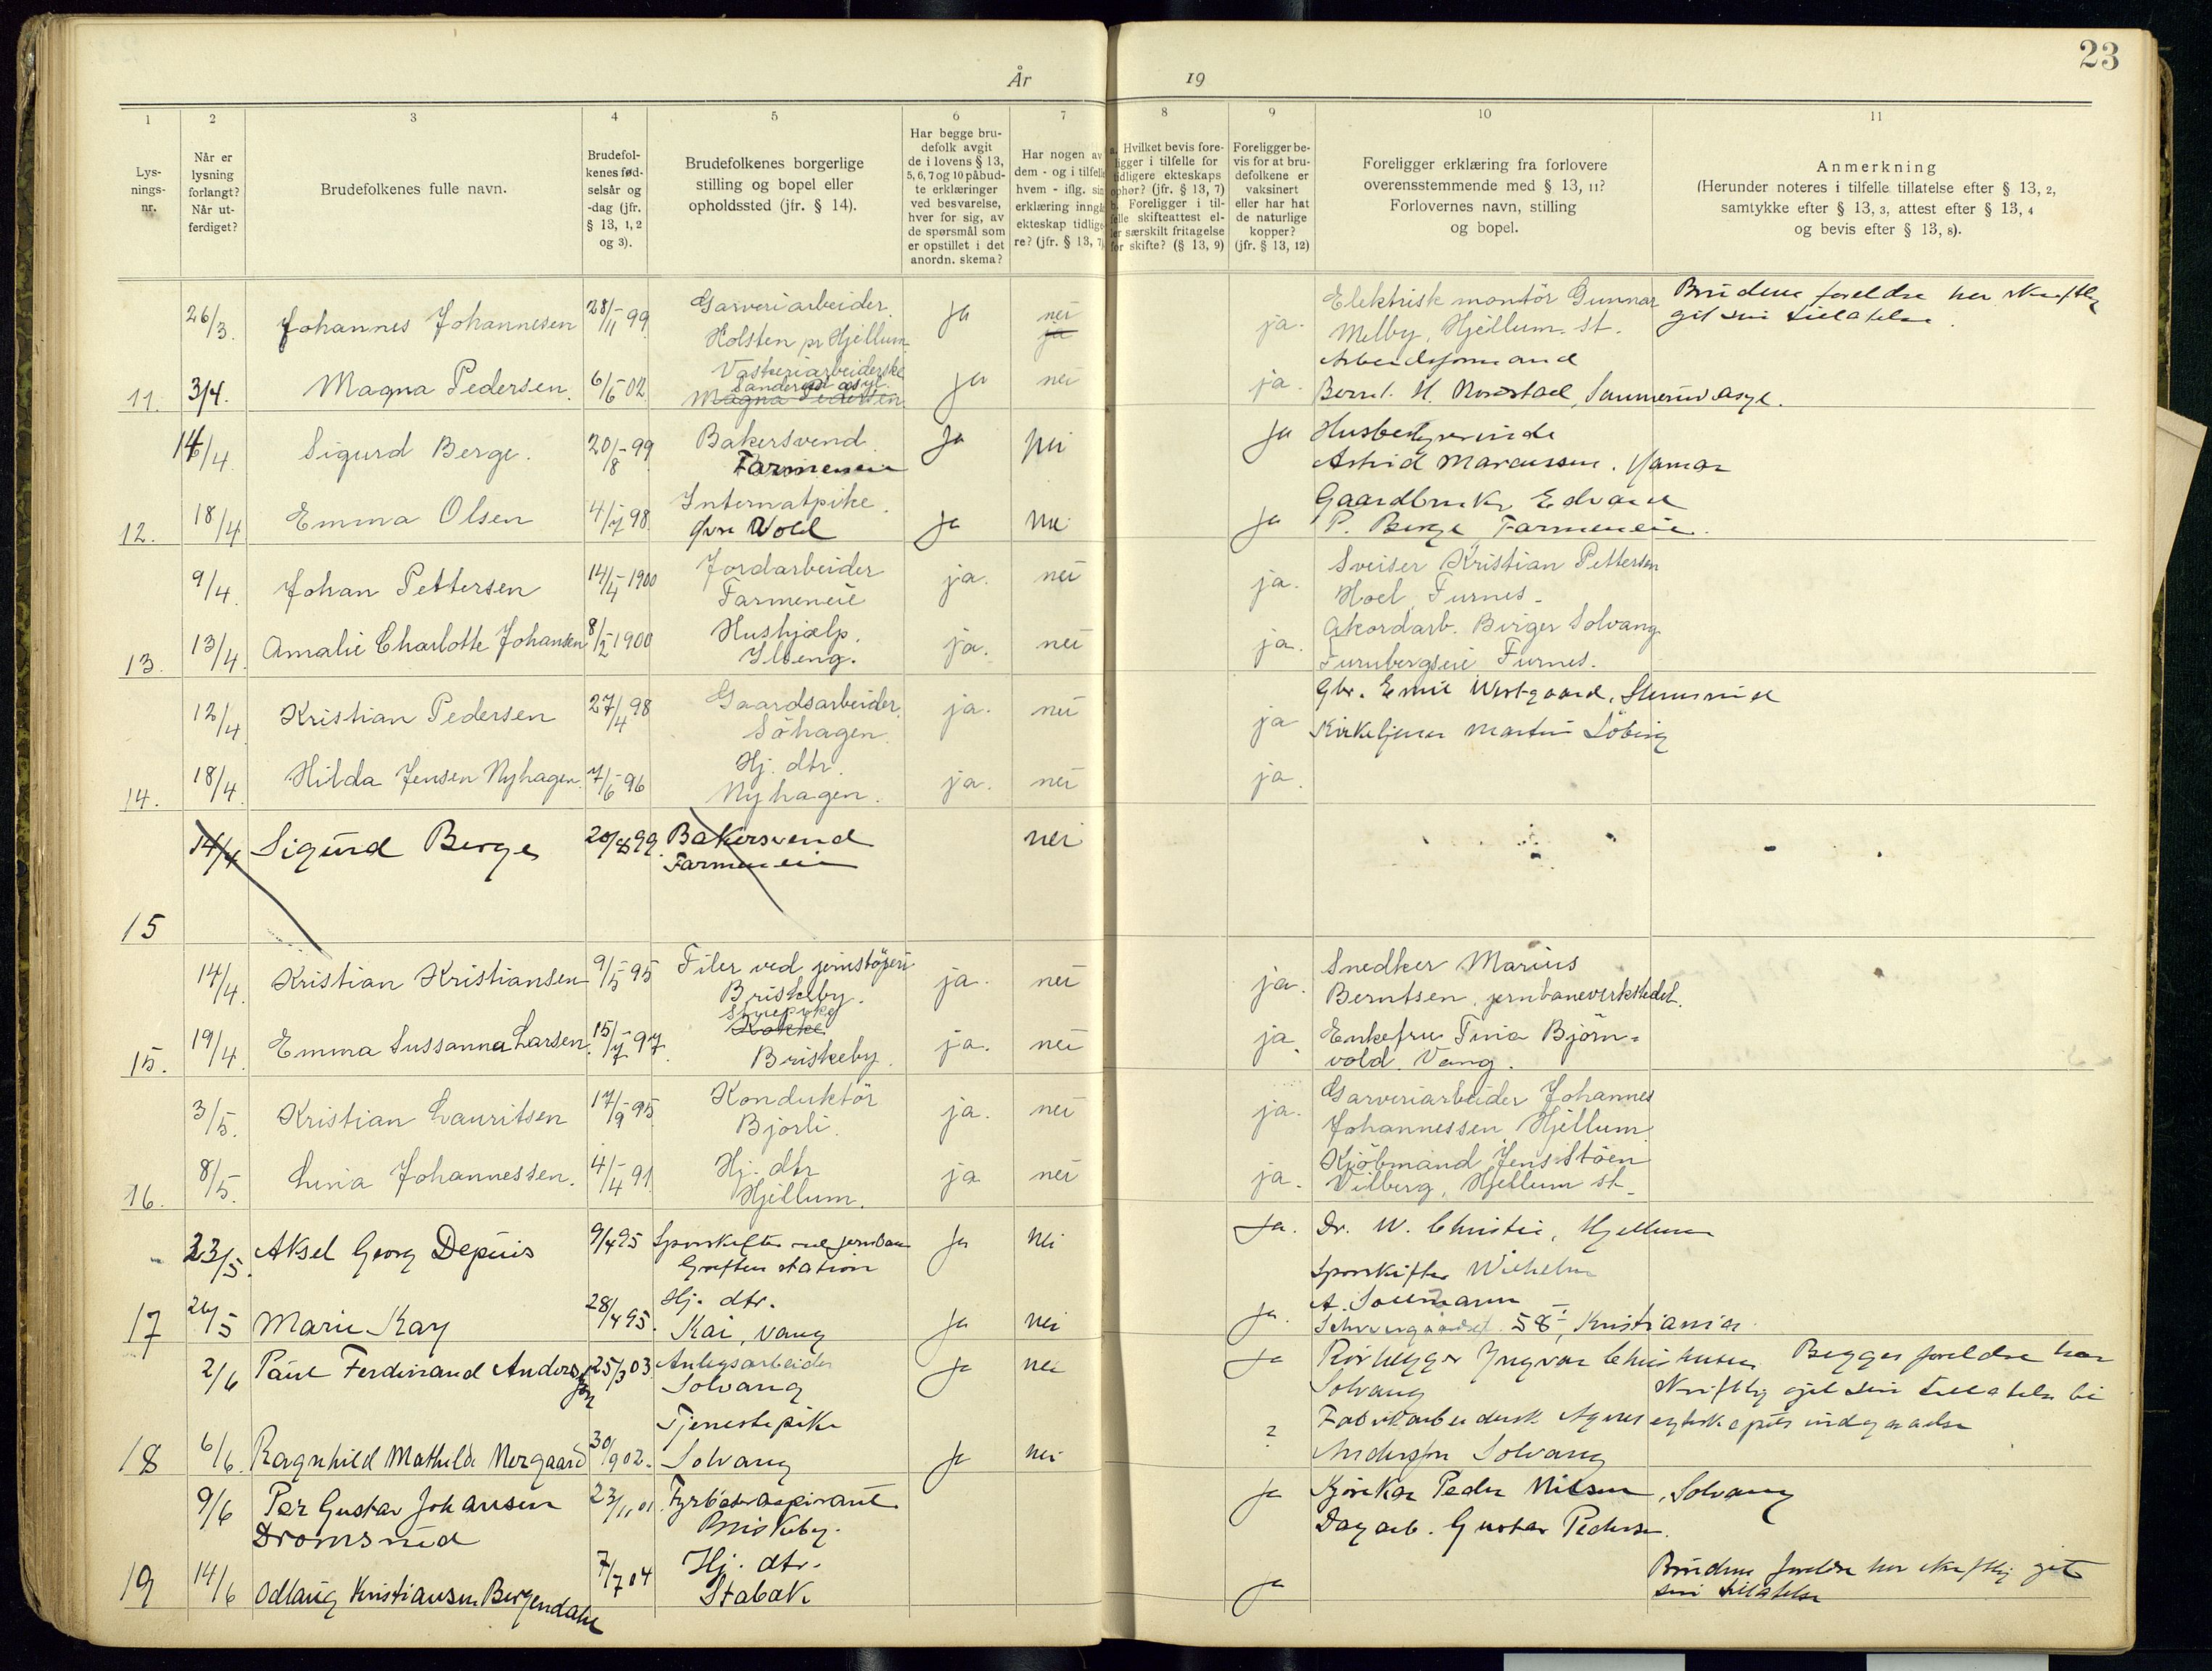 23
År 19
1 2 3 4 5 6 7 8 9 10 11
Lys-
nings-
nr.
Når er
lysning
forlangt?
Når ut-
ferdiget?
Brudefolkenes fulle navn.
Brudefol-
kenes fød-
selsår og
-dag (jfr.
§ 13, 1, 2
og 3).
Brudefolkenes borgerlige
stilling og bopel eller
opholdssted (jfr. § 14).
Har begge bru-
defolk avgit
de i lovens § 13,
5, 6, 7 og 10 påbud-
te erklæringer
ved besvarelse,
hver for sig, av
de spørsmål som
er opstillet i det
anordn. skema?
Har nogen av
dem - og i tilfelle
hvem - iflg. sin
erklæring inngå
ekteskap tidlige-
re? (jfr. § 13, 7)
a. Hvilket bevis fore-
ligger i tilfelle for
tidligere ekteskaps
ophør? (jfr. § 13, 7)
b. Foreligger i til-
felle skifteattest el-
ler særskilt fritagelse
for skifte? (§ 13, 9)
Foreligger be-
vis for at bru-
defolkene er
vaksinert
eller har hat
de naturlige
kopper?
(jfr. § 13, 12)
Foreligger erklæring fra forlovere
overensstemmende med § 13, 11?
Forlovernes navn, stilling
og bopel.
Anmerkning
(Herunder noteres i tilfelle tillatelse efter § 13, 2,
samtykke efter § 13, 3, attest efter § 13, 4
og bevis efter § 13, 8).
26/3. Johannes Johannesen 28/11-99 Garveriarbeider
Holsten pr Hjellum
Ja nei ja ja. Elektrisk montör Gunnar
Melby, Hjellum st.
Brudens foreldre har skriftlig
git sin tillatelse.
11. 3/4. Magna Pedersen. 6/6-02 Vaskeriarbeiderske
Sanderud asyl.
Magna Pedersen
ja nei ja. Arbeidsformand
Bernt H. Norstad, Sannerud asyl.
14/4 Sigurd Berge. 20/8-99 Bakersvend
Farmeneie
Ja nei Ja Husbestyrerinde
Astrid Marcussen. Hamar
12. 18/4 Emma Olsen 4/7-98 Internatpike.
Øvre Vold
Ja nei Ja Gaardbruker Edvard
P. Berge Farmeneie.
9/4. Johan Pettersen 14/4-1900 Jordarbeider
Farmeneie
ja. nei ja. Sveiser Kristian Pettersen
Hoel, Furnes.
13. 13/4. Amalie Charlotte Johansen 8/2-1900 Hushjælp.
Ilseng.
ja. nei ja. Akordarb. Birger Solvang
Furubergseie Furnes.
12/4 Kristian Pedersen 27/4-98 Gaardsarbeider.
Söhagen
ja. nei ja Gbr. Emil Westgaard,
Kirketjener Martin
14. 18/4. Hilda Jensen Nyhagen. 7/6-96 Hj. dtr.
Nyhagen.
ja. nei ja.
15 14/4 Sigurd Berge 20/8 99. Bakersvend
Farmeneie
nei
14/4. Kristian Kristiansen 9/5-95 Filer ved jernstöperi
Briskeby.
ja. nei ja. Snedker Marius
Berntsen, jernbaneverkstedet.
15. 19/4 Emma Sussanna Larsen. 15/7-97. Syepike
Kokke
Briskeby.
ja. nei ja. Enkefru Tina Björn-
vold. Vang.
3/5. Kristian Lauritsen 17/9-95 Konduktör
Bjorli.
ja. nei ja. Garveriarbeider Johannes
Johannessen Hjellum.
16. 8/5. Lina Johannessen. 4/4-91 Hj. dtr
Hjellum.
ja nei ja. Kjöbmand Jens Stöen
Vilberg, Hjellum st.
23/5. Aksel Georg Depuis 9/4 95 Sporskifter ved jernbanen
Greften station
Ja nei Ja. Dr. W. Christie, Hjellum
17 24/5 Marie Kay 28/4 95. Hj. dtr.
Kai, Vang
Ja nei Ja. Sporskifter Wilhelm
A.
58 I, Kristiania.
2/6 Paul Ferdinand Anderssen 25/3 03 Anlegsarbeider
Solvang
Ja nei Ja Rörlegger Yngvar Christensen
Solvang
Begges foreldre har
skriftlig git sin tillatelse til
egteskapets indgaaelse
18 6/6. Ragnhild Mathilde Norgaard 30/9 02. Tjenestepike
Solvang
Ja nei ? Fabrikarbeiderske Agnes
Anderssen Solvang
9/6 Per Gustav Johansen
Dromsrud
23/11 01. Fyrböteraspirant
Briskeby.
Ja Kjörekar Peder Nilsen, Solvang
Dagarb. Gustav Pedersen.
19 14/6 Odlaug Kristiansen Bergendahl 7/7 04 Hj. dtr.
Stabak
Ja Brudens foreldre har skriftlig git
sin tillatelse